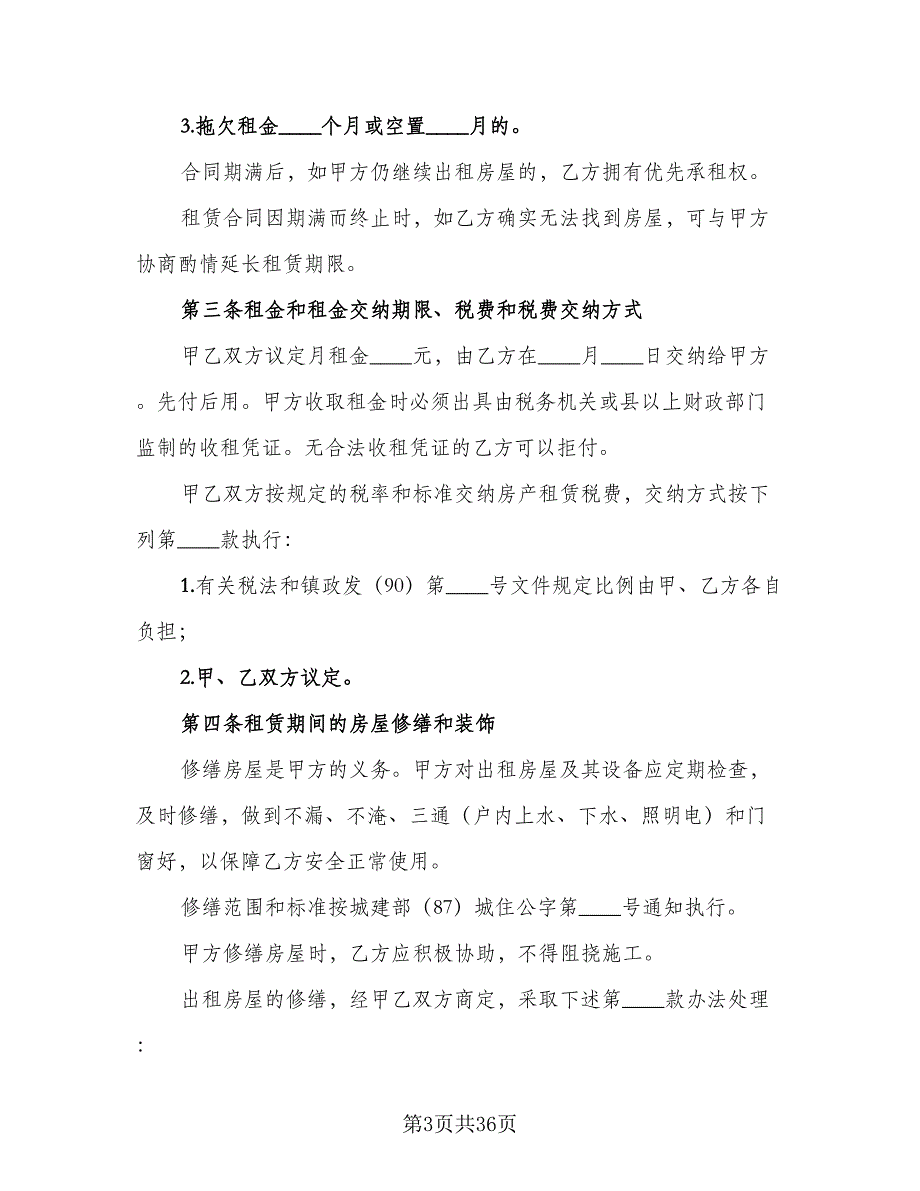 3.拖欠租金____个月或空置____月的。
合同期满后，如甲方仍继续出租房屋的，乙方拥有优先承租权。
租赁合同因期满而终止时，如乙方确实无法找到房屋，可与甲方
协商酌情延长租赁期限。
第三条租金和租金交纳期限、税费和税费交纳方式
甲乙双方议定月租金____元，由乙方在____月____日交纳给甲方
。先付后用。甲方收取租金时必须出具由税务机关或县以上财政部门
监制的收租凭证。无合法收租凭证的乙方可以拒付。
甲乙双方按规定的税率和标准交纳房产租赁税费，交纳方式按下
列第____款执行：
1.有关税法和镇政发（90）第____号文件规定比例由甲、乙方各自
负担；
2.甲、乙双方议定。
第四条租赁期间的房屋修缮和装饰
修缮房屋是甲方的义务。甲方对出租房屋及其设备应定期检查，
及时修缮，做到不漏、不淹、三通（户内上水、下水、照明电）和门
窗好，以保障乙方安全正常使用。
修缮范围和标准按城建部（87）城住公字第____号通知执行。
甲方修缮房屋时，乙方应积极协助，不得阻挠施工。
出租房屋的修缮，经甲乙双方商定，采取下述第____款办法处理
：
第3页共36页